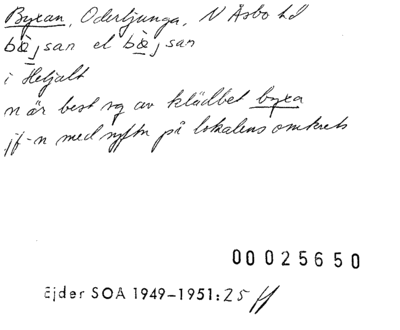 Byxan, Oderljunga, N Åsbo hd
bæ̀jsan el bæ̀jsan
i Heljalt
n är best sg av klädbet byxa
jf-n med syftn på lokalens omkrets
00025650
Ejder SOA 1949-1951:25 ff